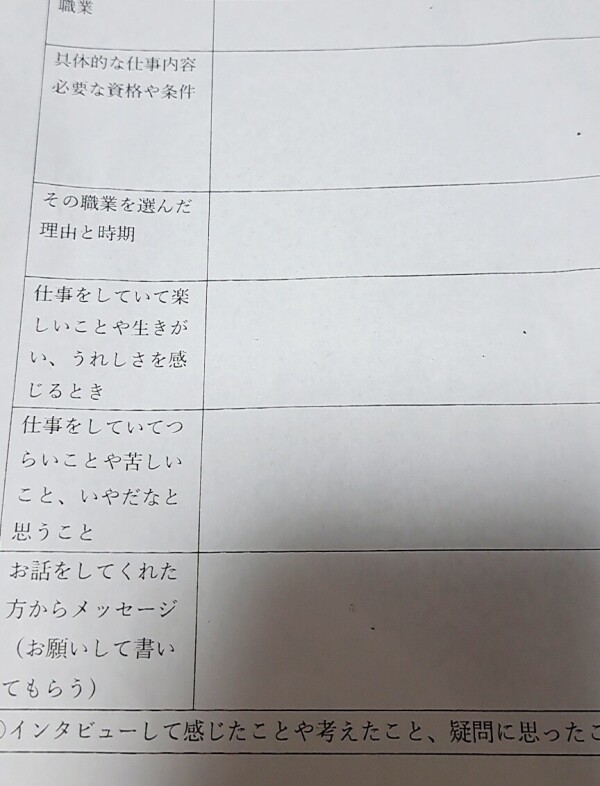 職業
具体的な仕事内容
必要な資格や条件
その職業を選んだ
理由と時期
仕事をしていて楽
しいことや生きが
い、うれしさを感
じるとき
仕事をしていてつ
らいことや苦しい
こと、いやだなと
思うこと
お話をしてくれた
方からメッセージ
（お願いして書い
てもらう）
)インタビューして感じたことや考えたこと、疑問に思ったこ